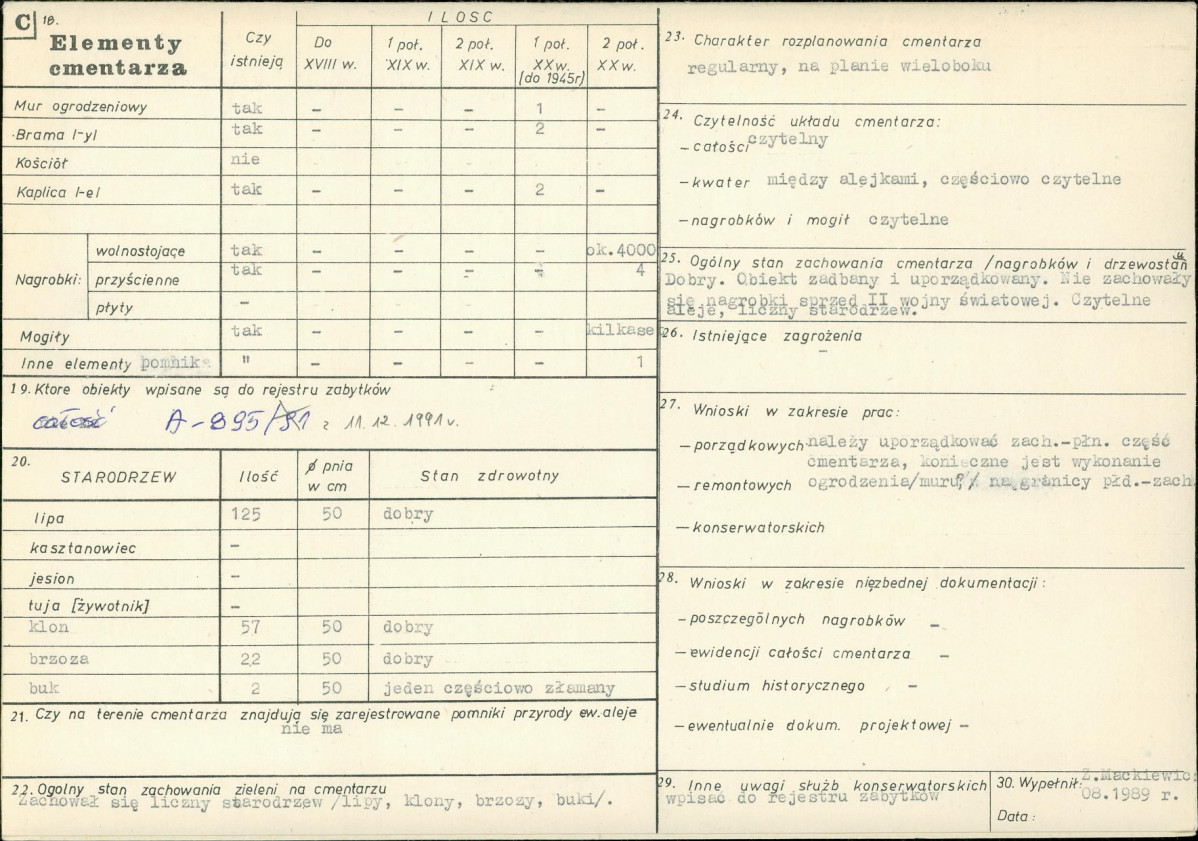 C 18.
Elementy
cmentarza
Czy
istnieją
ILOSC
Do
XVIII w.
1 poł.
XIX w.
2 poł.
XIX w.
1 poł.
XX w.
(do 1945r)
2 poł.
XX w.
Mur ogrodzeniowy tak – – – 1 –
Brama l-yl tak – – – 2 –
Kościół nie
Kaplica l-el tak – – – 2 –
Nagrobki: wolnostojące tak – – – – ok.4000
przyścienne tak – – – – 4
płyty –
Mogiły tak – – – – kilkase
Inne elementy pomnik " – – – – 1
19. Ktore obiekty wpisane są do rejestru zabytków
całość A-895/91 z 11.12.1991 r.
20.
STARODRZEW Ilość ø pnia
w cm
Stan zdrowotny
lipa 125 50 dobry
kasztanowiec –
jesion –
tuja [żywotnik] –
klon 57 50 dobry
brzoza 22 50 dobry
buk 2 50 jeden częściowo złamany
21. Czy na terenie cmentarza znajdują się zarejestrowane pomniki przyrody ew. aleje
nie ma
22. Ogolny stan zachowania zieleni na cmentarzu
Zachował się liczny starodrzew /lipy, klony, brzozy, buki/.
23. Charakter rozplanowania cmentarza
regularny, na planie wieloboku
24. Czytelność układu cmentarza:
– całości czytelny
– kwater między alejkami, częściowo czytelne
– nagrobków i mogił czytelne
25. Ogólny stan zachowania cmentarza /nagrobków i drzewostanu
Dobry. Obiekt zadbany i uporządkowany. Nie zachowały
się nagrobki sprzed II wojny światowej. Czytelne
aleje, liczny starodrzew.
26. Istniejące zagrożenia
–
27. Wnioski w zakresie prac:
– porządkowych należy uporządkować zach.-płn. część
cmentarza, konieczne jest wykonanie
– remontowych ogrodzenia/muru?/ na granicy płd.-zach.
– konserwatorskich
28. Wnioski w zakresie nięzbednej dokumentacji:
– poszczególnych nagrobków –
– ewidencji całości cmentarza –
– studium historycznego –
– ewentualnie dokum. projektowej –
29. Inne uwagi służb konserwatorskich
wpisać do rejestru zabytków
30. Wypełnił: Z.Mackiewicz
08.1989 r.
Data: